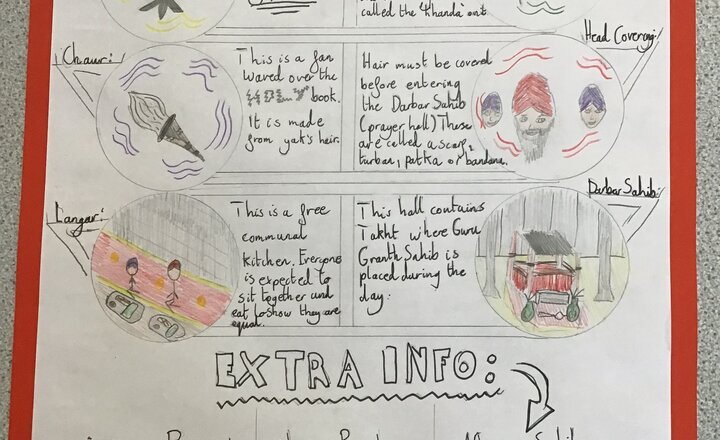 called the 'Khanda' out.
Chaur:
This is a fan
waved over the
HOLY book.
It is made
from yak's hair.
Head Covering:
Hair must be covered
before entering
the Darbar Sahib
(prayer hall) These
are called a scarf,
turban, patka or bandana.
Langar:
This is a free
communal
kitchen. Everyone
is expected to
sit together and
eat to show they are
equal.
Darbar Sahib:
This hall contains
Takht where Guru
Granth Sahib is
placed during the
day.
EXTRA INFO: